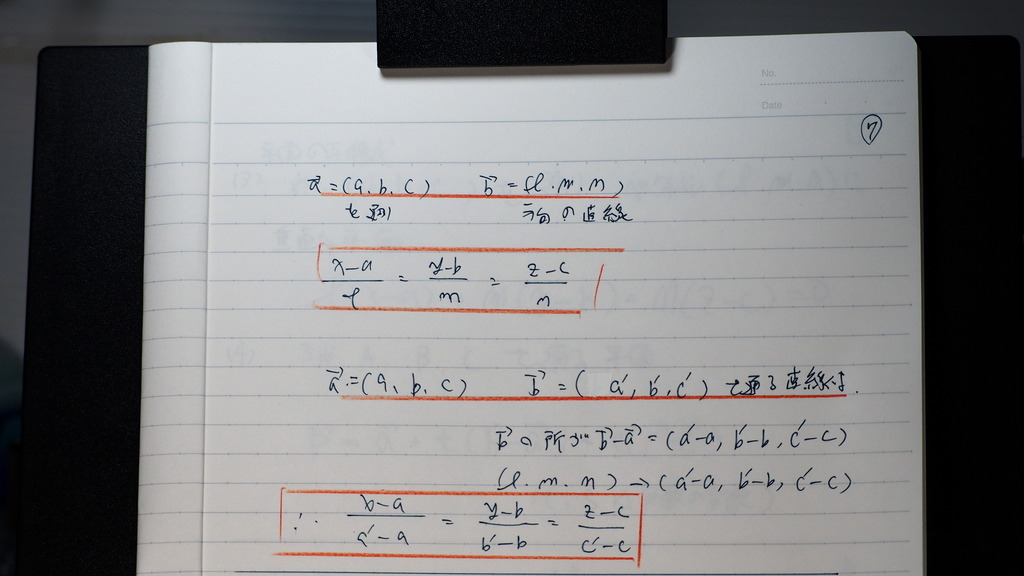 No.
Date
⑦
a⃗=(a, b, c) b⃗=(l, m, n)
を通り 方向の直線
(x-a)/l = (y-b)/m = (z-c)/n
a⃗=(a, b, c) b⃗=( a′, b′, c′) を通る直線は.
b⃗の所が b⃗-a⃗=(a′-a, b′-b, c′-c)
(l, m, n)→(a′-a, b′-b, c′-c)
∴ (x-a)/(a′-a) = (y-b)/(b′-b) = (z-c)/(c′-c)